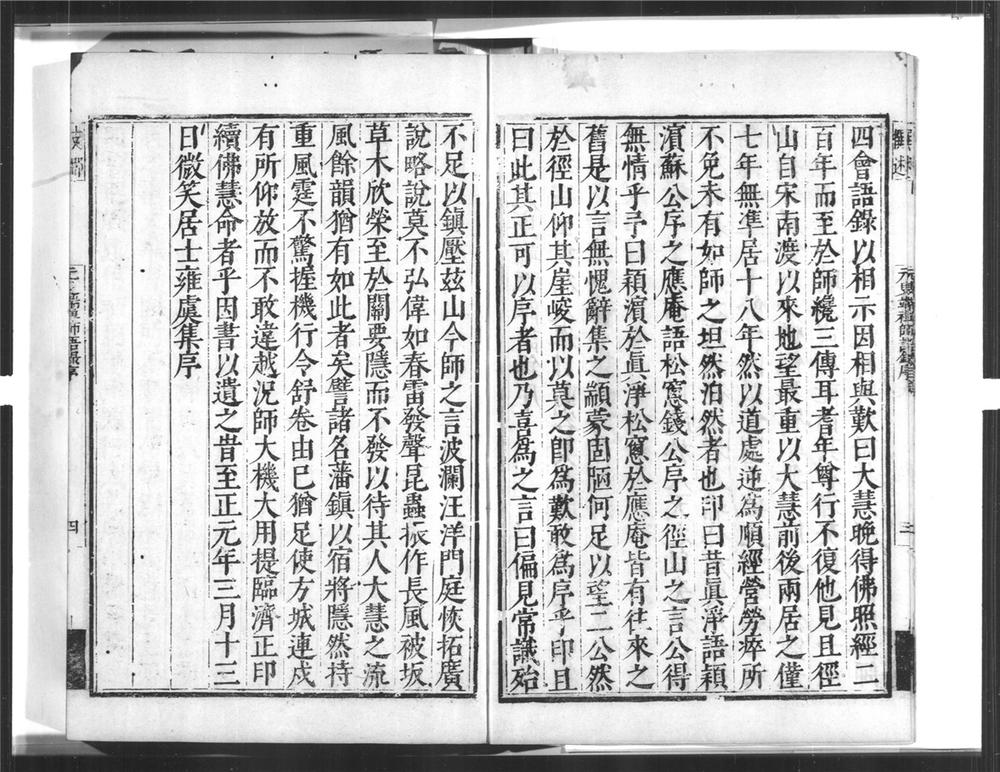 四會語錄以相示因相與歎曰大慧晚得佛照經二
百年而至於師纔三傳耳耆年尊行不復他見且徑
山自宋南渡以來地望最重以大慧前後兩居之僅
七年無準居十八年然以道處逆為順經營勞瘁所
不免未有如師之坦然泊然者也印曰昔眞淨語穎
濵蘇公序之應庵語松窻錢公序之徑山之言公得
無情乎予曰穎濵於眞淨松窻於應庵皆有往來之
舊是以言無愧辭集之顓蒙固陋何足以望二公然
於徑山仰其崖峻而以莫之卽為歎敢為序乎印且
曰此其正可以序者也乃喜為之言曰偏見常識殆
不足以鎮壓兹山今師之言波瀾汪洋門庭恢拓廣
說略說莫不弘偉如春雷發聲昆蟲振作長風被坂
草木欣榮至於關要隱而不發以待其人大慧之流
風餘韻猶有如此者矣譬諸名藩鎮以宿將隱然持
重風霆不驚握機行令舒卷由己猶足使方城連戍
有所仰放而不敢違越況師大機大用提臨濟正印
續佛慧命者乎因書以遺之昔至正元年三月十三
日微笑居士雍虞集序
四